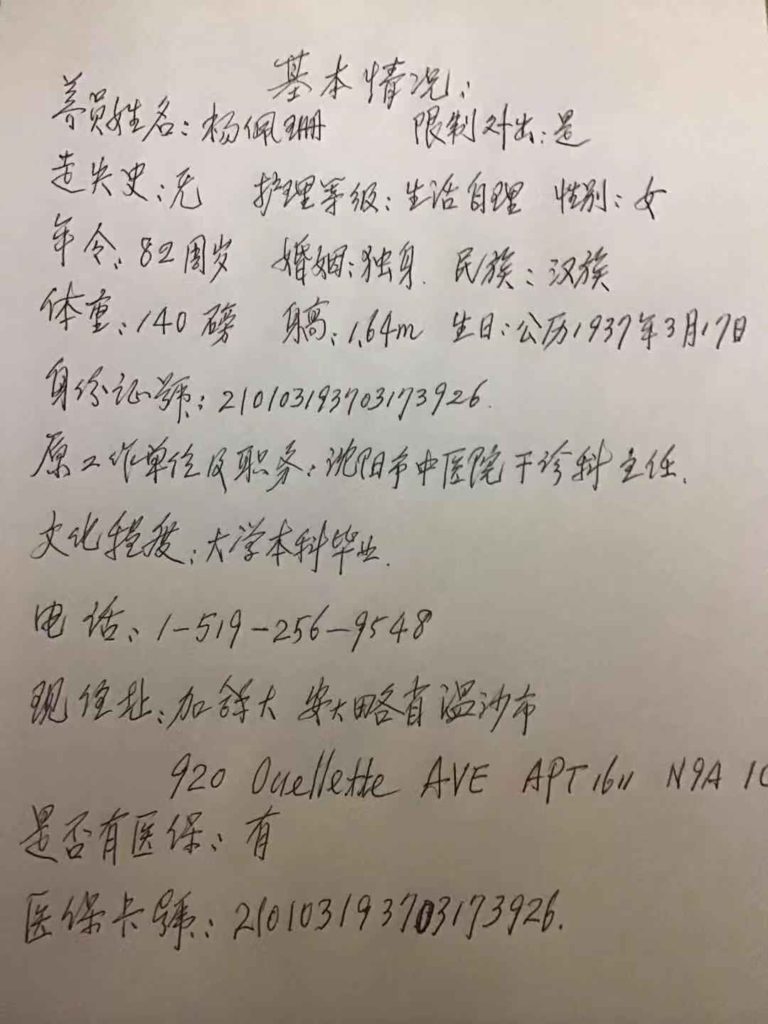 基本情况：
养员姓名：杨佩珊 限制外出：是
走失史：无 护理等级：生活自理 性别：女
年令：82周岁 婚姻：独身. 民族：汉族
体重：140磅 身高：1.64m 生日：公历1937年3月17日
身份证號：210103193703173926.
原工作单位及职务：沈阳市中医院干诊科主任.
文化程度：大学本科毕业.
电话：1-519-256-9548
现住址：加拿大 安大略省温沙市
920 Ouellette AVE APT1611 N9A 1C
是否有医保：有
医保卡號：210103193703173926.